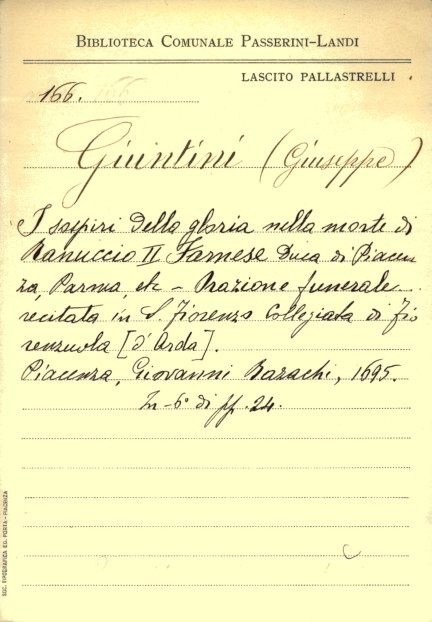 BIBLIOTECA COMUNALE PASSERINI-LANDI
LASCITO PALLASTRELLI
166.
Giuntini (Giuseppe)
I sospiri della gloria nella morte di
Ranuccio II Farnese Duca di Piacen
za, Parma, etc - Orazione funerale
recitata in S. Fiorenzo Collegiata di Fio
renzuola [d'Arda].
Piacenza, Giovanni Bazachi, 1695.
In-6° di pp. 24.
SOC. TIPOGRAFICA ED. PORTA-PIACENZA